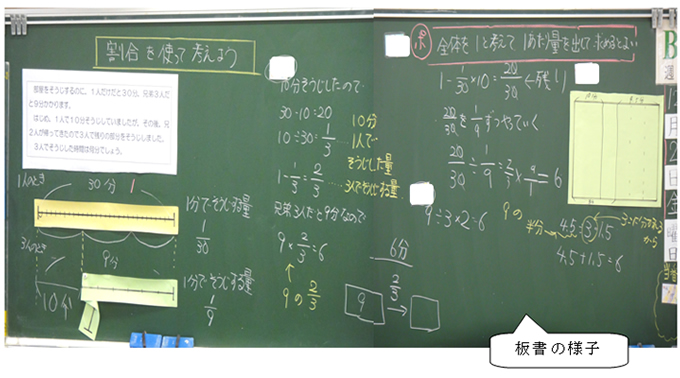 割合を使って考えよう
部屋をそうじするのに、1人だけだと30分、兄弟3人だ
と9分かかります。
はじめ、1人で10分そうじしていましたが、その後、兄
2人が帰ってきたので3人で残りの部分をそうじしました。
3人でそうじした時間は何分でしょう。
1人のとき
30分
1
1分でそうじする量
1/30
3人のとき
9分
10分
1分でそうじする量
1/9
10分そうじしたので
30-10=20
10÷30=1/3
10分
1人で
そうじした量
1-1/3=2/3
3人でそうじする量
兄弟3人だと9分なので
9×2/3=6
9の2/3
ポ 全体を1と考えて1あたり量を出して求めるとよい
1-1/30×10=20/30←残り
20/30を1/9ずつやっていく
20/30÷1/9=2/3×9/1=6
9÷3×2=6
9の
半分
4.5÷3=1.5
から
4.5+1.5=6
6分
2/3
9
月
日
金
曜
日
板書の様子